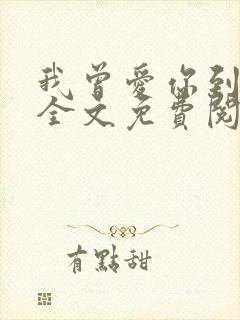 我曾愛你到
全文免費閱
有點甜